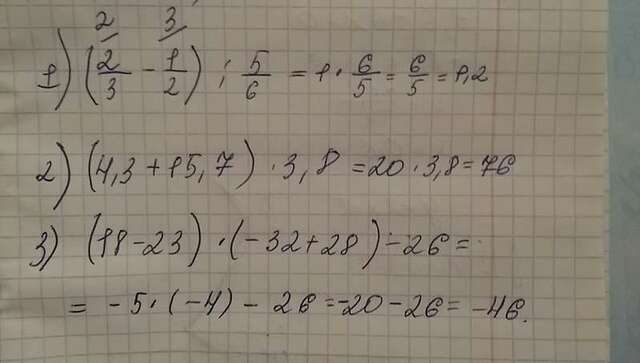 2 3
1) (2/3 - 1/2) : 5/6 = 1 · 6/5 = 6/5 = 1,2
2) (4,3 + 15,7) · 3,8 = 20 · 3,8 = 76
3) (18 - 23) · (-32 + 28) - 26 =
= -5 · (-4) - 26 = -20 - 26 = -46.